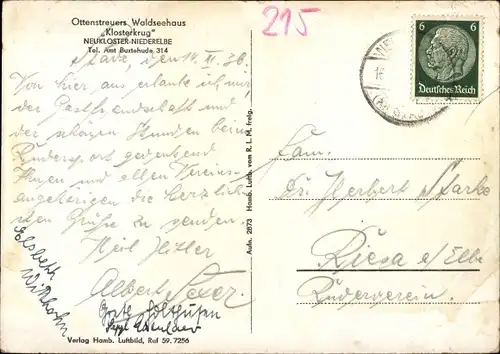 Ottenstreuers Waldseehaus
„Klosterkrug"
NEUKLOSTER-NIEDERELBE
Tel. Amt Buxtehude 314
215
6 6
Deutsches Reich
Stade, den 14. II. 36.
Von hier aus erlaube ich mir,
der Gastfreundschaft und
der schönen Stunden beim
Rudersport gedenkend
Ihnen und allen Vereins-
angehörigen die herzlich-
sten Grüße zu senden.
Heil Hitler
Albert
Elsbeth
Fam.
Dr. Herbert Starke
Riesa a/Elbe
Ruderverein.
Aufn. 2873 Hamb. Luftb. vom R. L. M. freig.
Verlag Hamb. Luftbild, Ruf 59. 7256